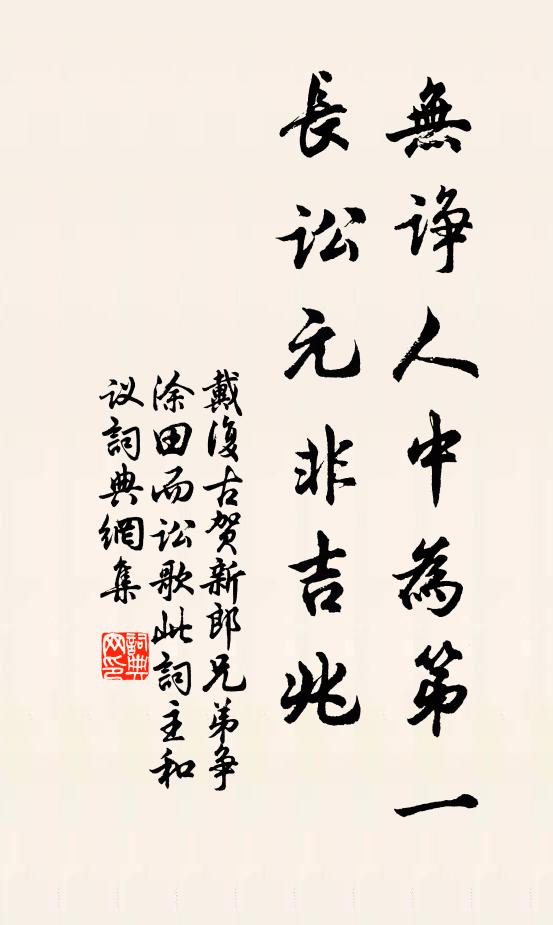 無諍人中為第一
長訟元非吉兆
戴復古贺新郎兄弟争
涂田而讼歌此詞主和
议詞典網集
詞典网印